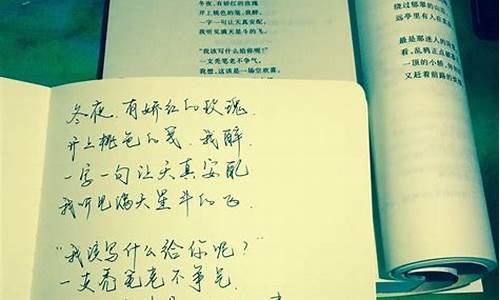 冬夜,有娇红的玫瑰
开上桃色的笺,我醉,
一字一句让天真安配
我听见满天星斗的飞。
“我该写什么给你呢?”
一支秃笔老不争气。
我想,这该是一场空欢喜。
绕过郁翠的山
远亭里有人在
最是那迷人的
看,乱鸦正点破
一顶的小轿,
又赶着前路的
冬夜,有娇红的玫瑰,
开上桃色的笺,我醉,
一字一句让天真安配
我听见满天星斗的飞。
“我该写什么给你呢?”
一支秃笔老不争气.